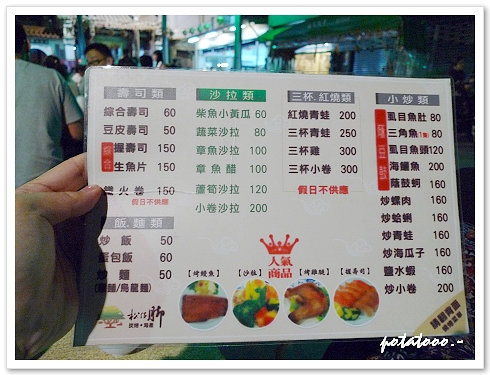 壽司類
綜合壽司 60
豆皮壽司 50
握壽司 150
生魚片 150
火卷 150
假日不供應
飯.麵類
炒飯 50
蛋包飯 60
炒麵 50
沙拉類
柴魚小黃瓜 60
蔬菜沙拉 80
章魚沙拉 100
章魚醋 100
蘆筍沙拉 120
小卷沙拉 200
三杯.紅燒類
紅燒青蛙 200
三杯青蛙 250
三杯雞 300
三杯小卷 300
假日不供應
小炒類
虱目魚肚 80
三角魚 80
虱目魚頭 120
海鱺魚 200
蔭鼓蚵 160
炒螺肉 160
炒蛤蜊 160
炒青蛙 160
炒海瓜子 160
鹽水蝦 160
炒小卷 200
人氣
商品
【烤鰻魚】
【沙拉】
【烤雞腿】
【握壽司】
potatooo.~